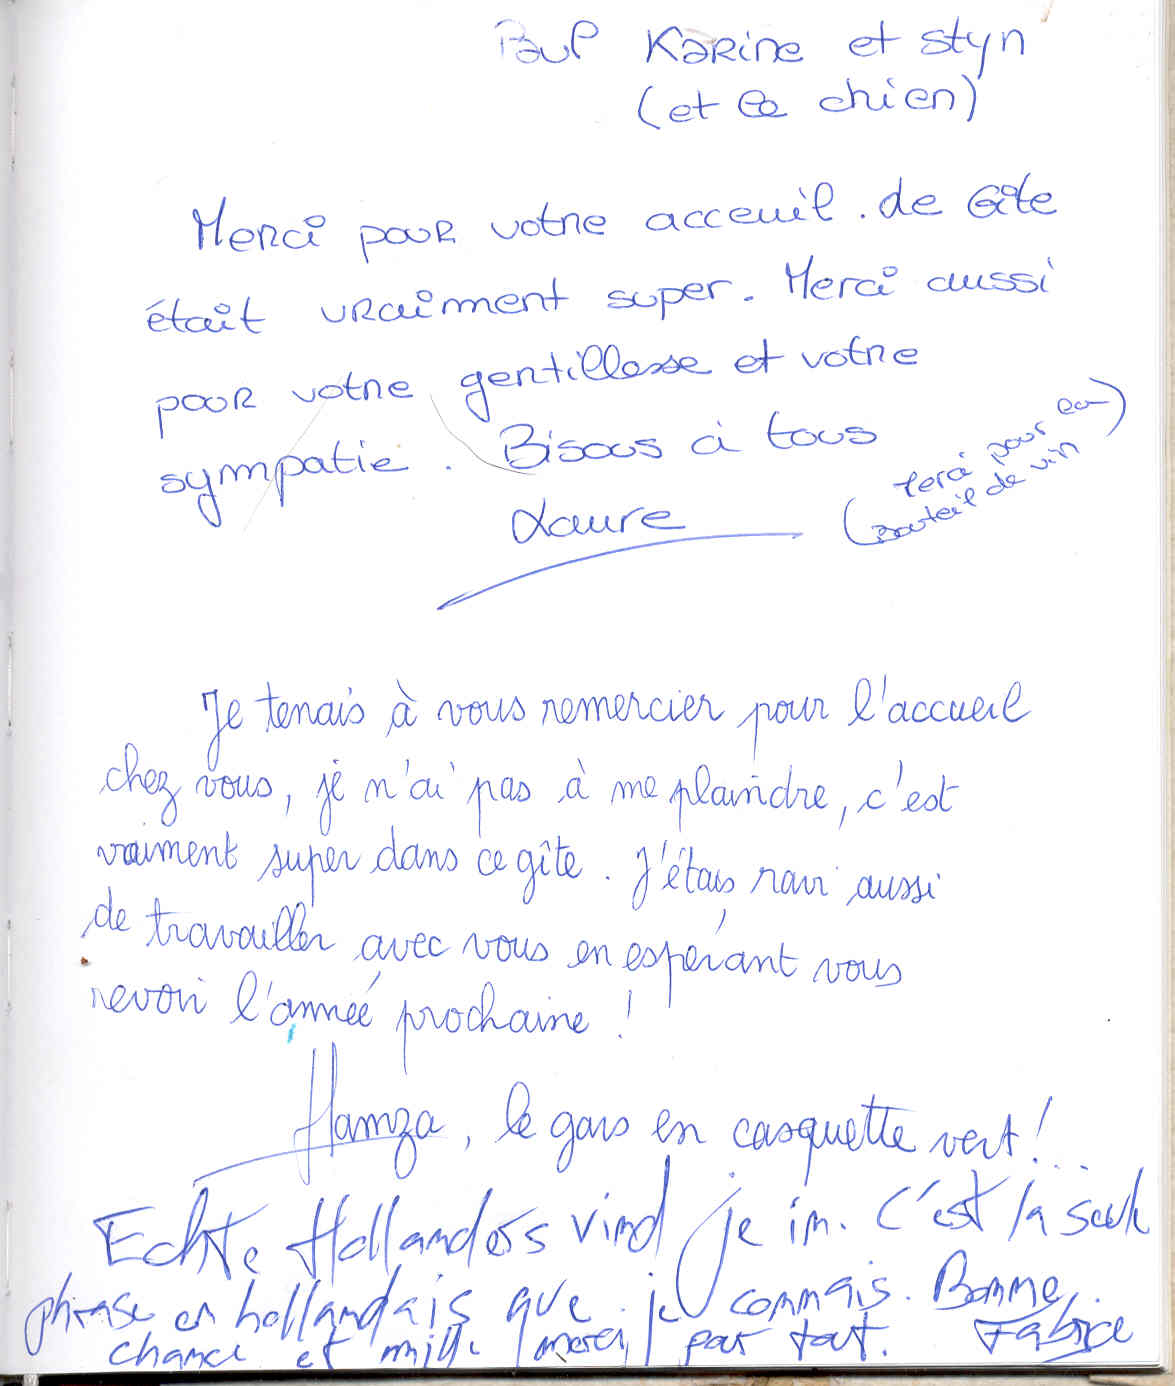 Paul Karine et styn
(et le chien)
Merci pour votre acceuil. de Gîte
était vraiment super. Merci aussi
pour votre gentillesse et votre
sympatie. Bisous à tous
Laure
(Merci pour la
bouteil de vin)
Je tenais à vous remercier pour l'accueil
chez vous, je n'ai pas à me plaindre, c'est
vraiment super dans ce gîte. J'étais ravi aussi
de travailler avec vous en espérant vous
revoir l'année prochaine !
Hamza, le gars en casquette vert !...
Echte Hollanders vind je in. C'est la seule
phrase en hollandais que je connais. Bonne
chance et mille merci, par tout. Fabrice